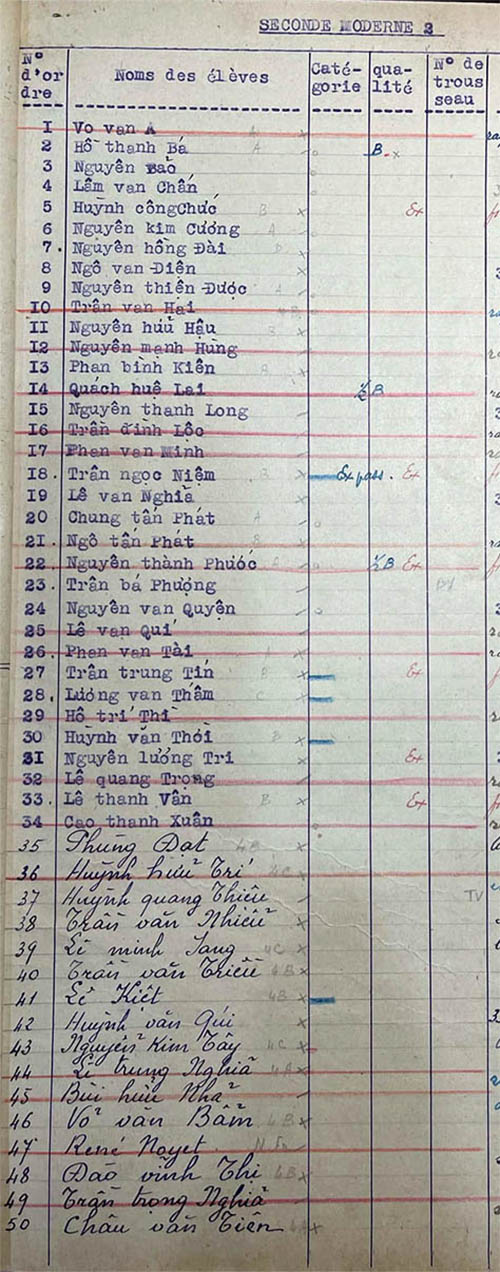 SECONDE MODERNE 2
N° d'or dre Noms des élèves Caté- gorie qua- lité N° de trous seau
1 Vo van A A
2 Hồ thanh Bá A B. x
3 Nguyên Bảo
4 Lâm van Chấn
5 Huỳnh côngChức B x Ex
6 Nguyên kim Cương A
7. Nguyên hồng Đài
8 Ngô van Diện x
9 Nguyên thiên Được A
10 Trân van Hai 4B
11 Nguyên hửu Hậu B x
12 Nguyên mạnh Hùng
13 Phan bình Kiên x
14 Quách huê Lai ½B
15 Nguyên thanh Long
16 Trần đình Lộc
17 Phan van Minh
18. Trân ngọc Niệm B x Ex pass. Ex
19 Lê van Nghĩa x
20 Chung tấn Phát A
21. Ngô tấn Phát B x
22. Nguyên thành Phước A ½B Ex
23. Trân bá Phượng
24 Nguyên van Quyện
25 Lê van Quí
26. Phan van Tài x
27 Trân trung Tín B x Ex
28. Lương van Thâm C x
29 Hồ trí Thì
30 Huỳnh văn Thời B x
31 Nguyên lương Tri x Ex
32 Lê quang Trọng
33. Lê thanh Vân B x Ex
34 Cao thanh Xuân
35 Phùng Đạt 4B x
36 Huỳnh hữu Trí 4C x
37 Huỳnh quang Thiêu TV
38 Trần văn Nhiều x
39 Lê minh Sang 4C x
40 Trần văn Triều 4B x
41 Lê Kiệt 4B x
42 Huỳnh văn Qúi x
43 Nguyễn Kim Tây 4C
44 Lê trung Nghĩa 4A x
45 Bùi hữu Nhã
46 Võ văn Bẩm 4B x
47 René Noyet
48 Đào vĩnh Thi 4B x
49 Trần trọng Nghĩa
50 Châu văn Tiên 4A x